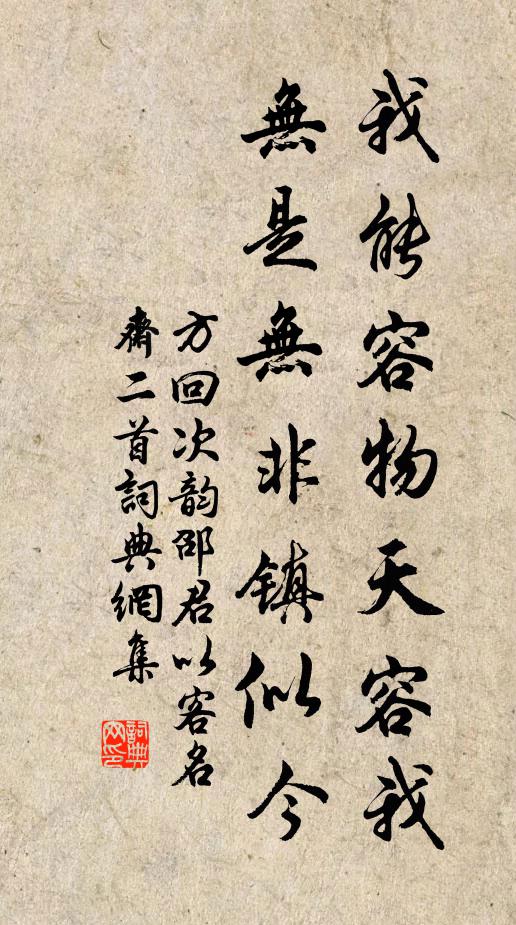 我能容物天容我
無是無非镇似今
方回次韵邵君以容名
齋二首詞典網集
詞典
网印